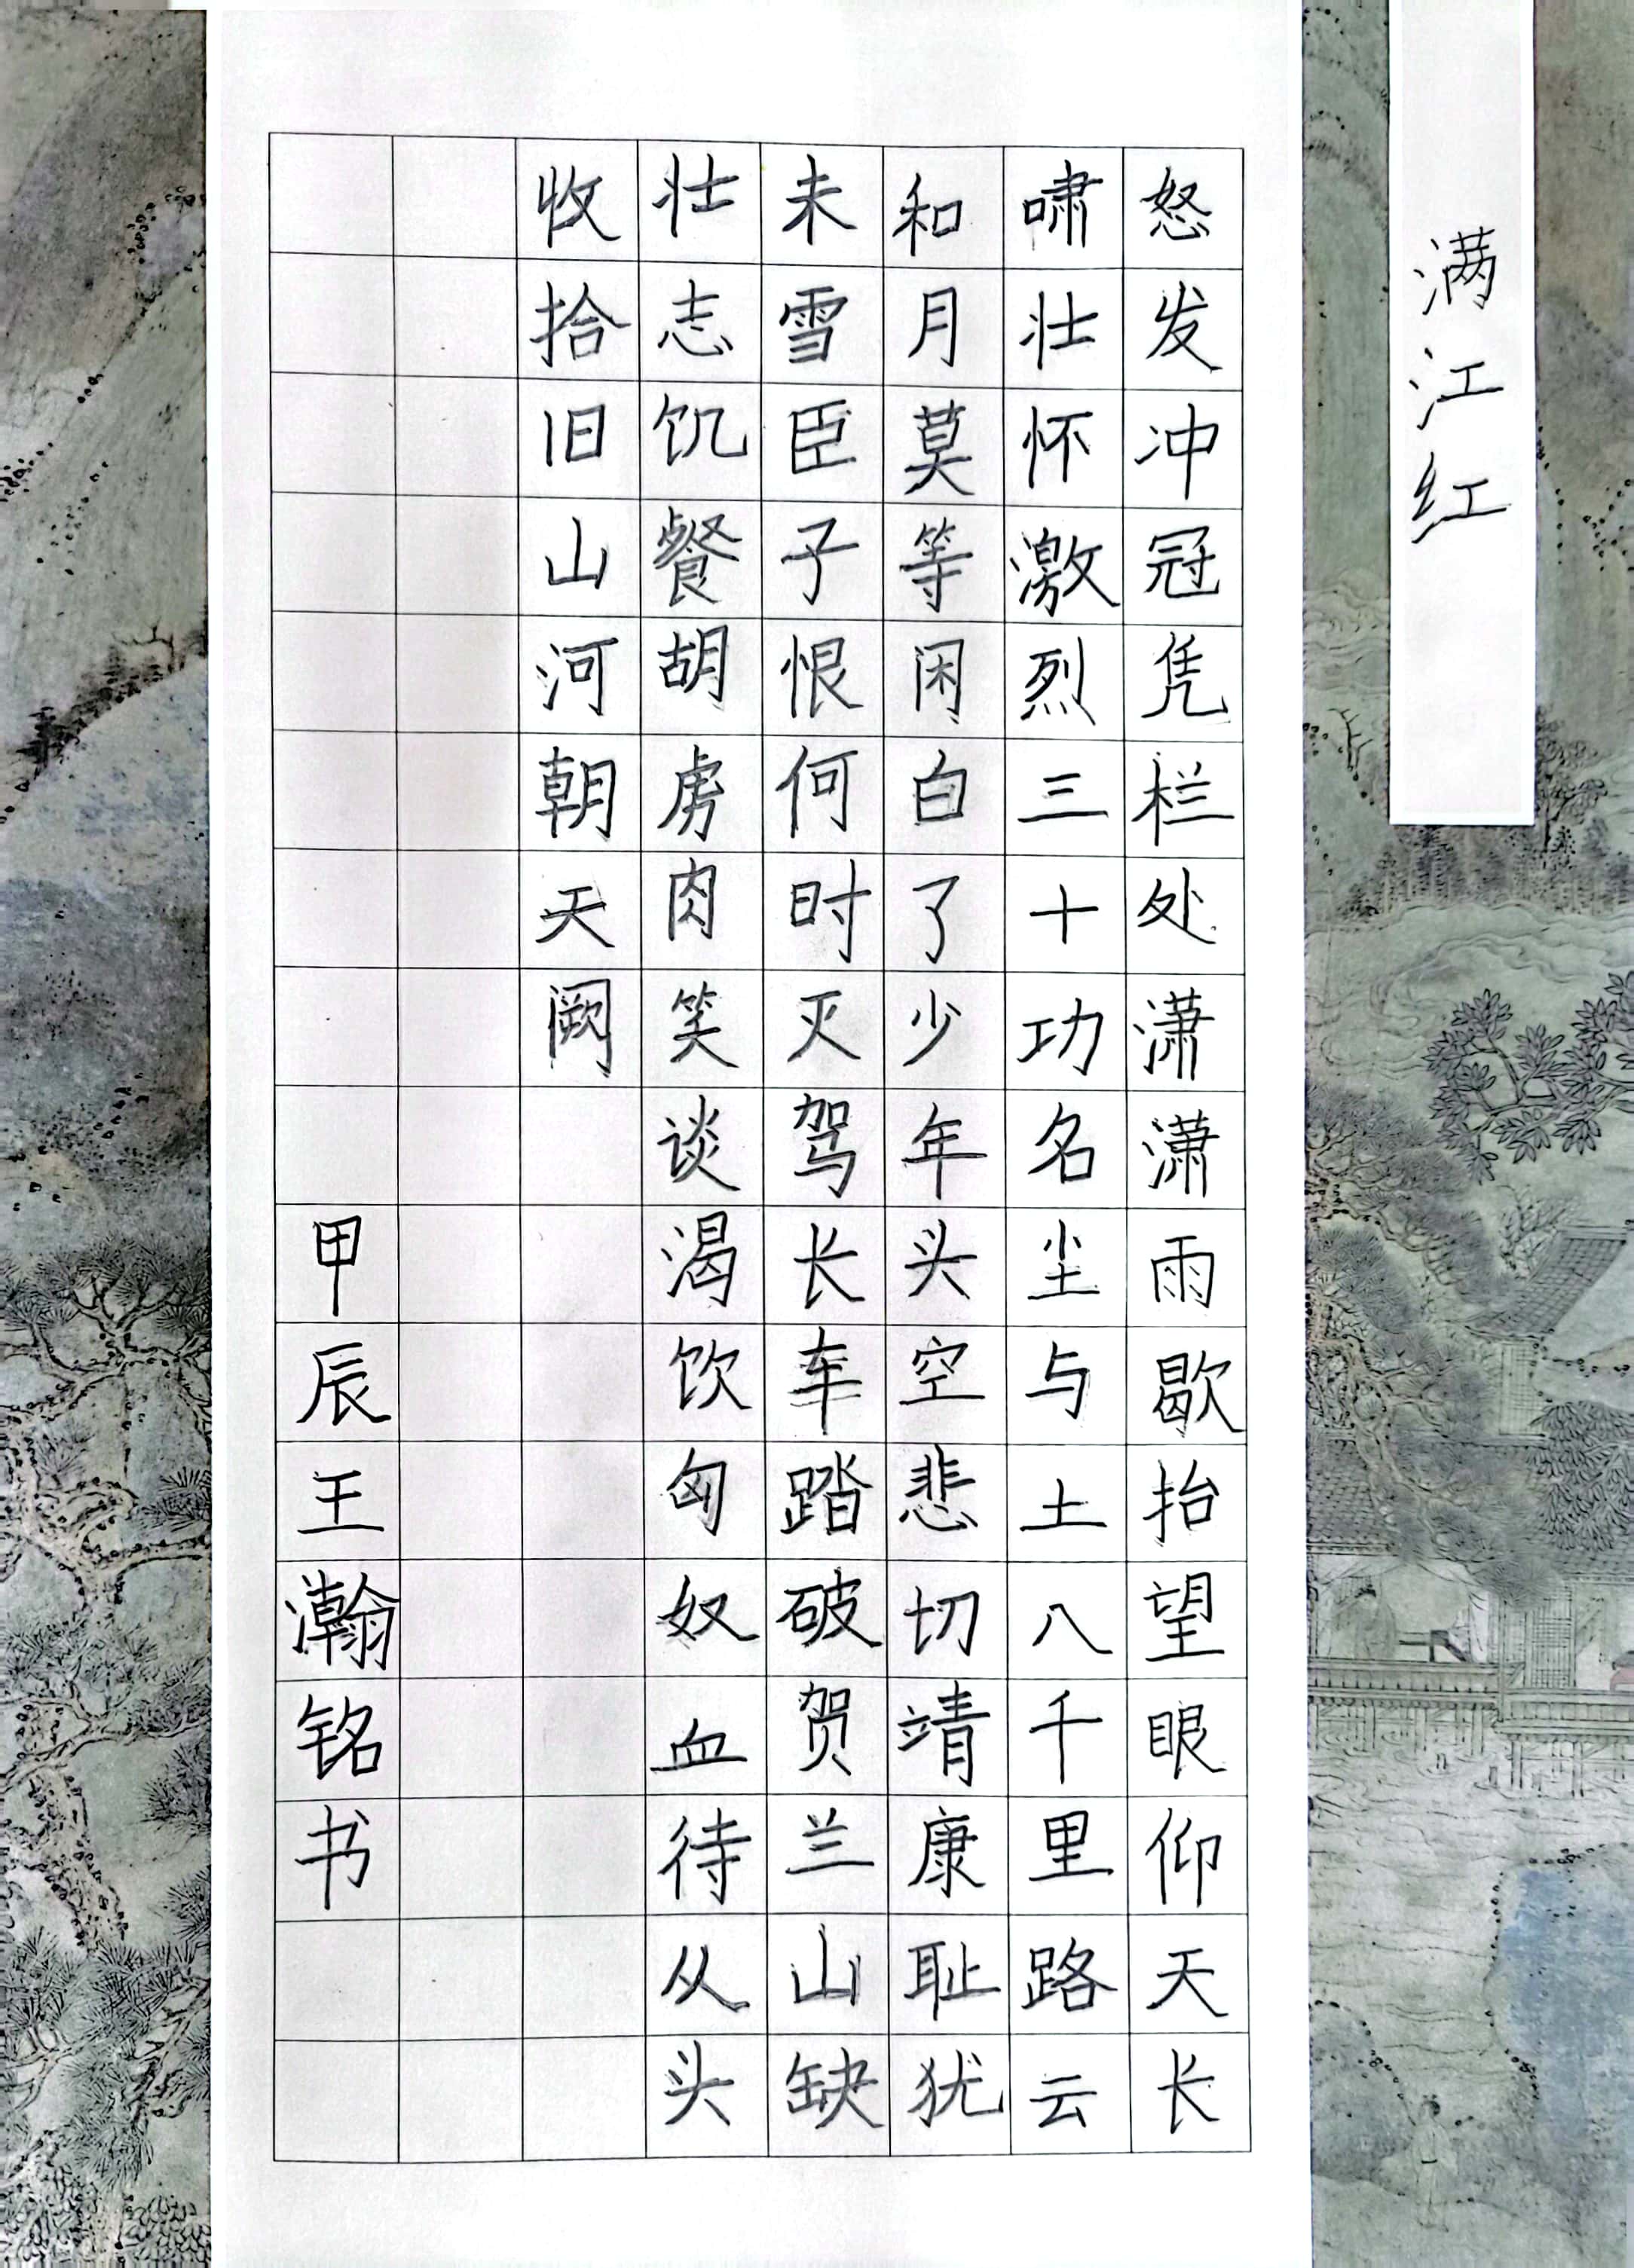 满江红
怒发冲冠凭栏处潇潇雨歇抬望眼仰天长
啸壮怀激烈三十功名尘与土八千里路云
和月莫等闲白了少年头空悲切靖康耻犹
未雪臣子恨何时灭驾长车踏破贺兰山缺
壮志饥餐胡虏肉笑谈渴饮匈奴血待从头
收拾旧山河朝天阙
甲辰王瀚铭书